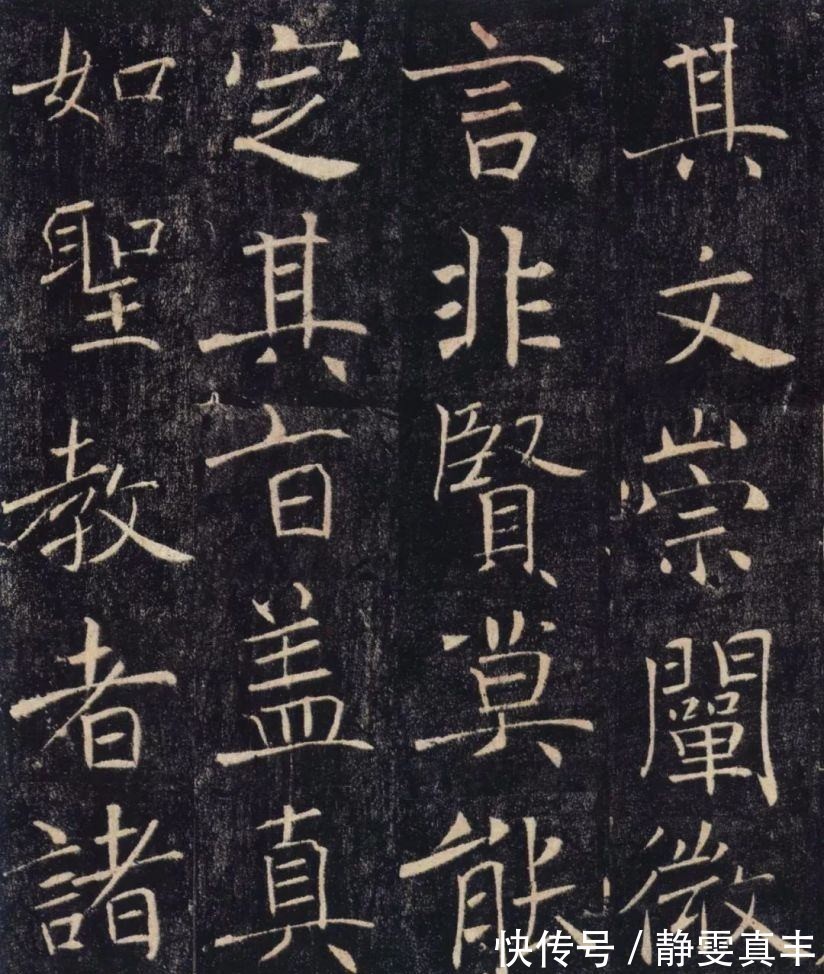 其文崇闡微
言非賢莫能
定其旨盖真
如聖教者諸
快传号 / 静雯真丰